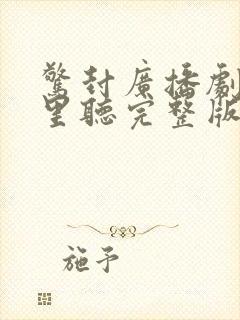 驚封廣播劇
里聽完整版
施予